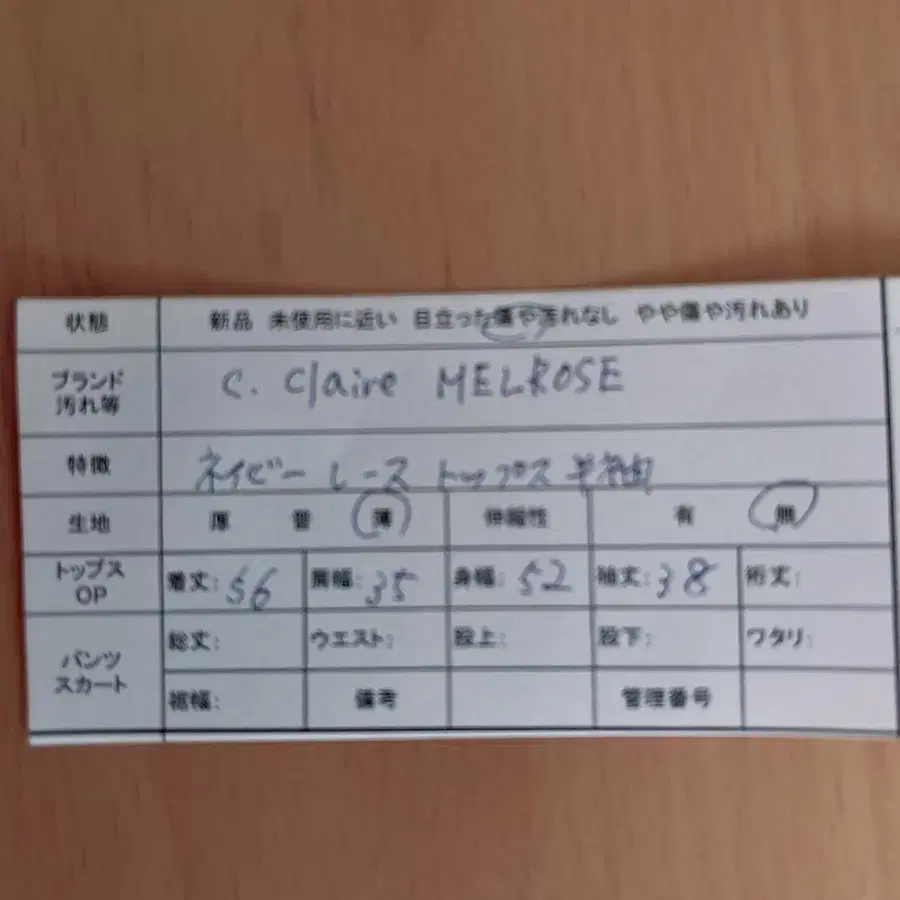 状態 新品 未使用に近い 目立った傷や汚れなし やや傷や汚れあり
ブランド C. Claire MELROSE
汚れ等
特徴 ネイビー レース トップス 半袖
生地 厚 普 薄 伸縮性 有 無
トップス 着丈: 56 肩幅: 35 身幅: 52 袖丈: 38 裄丈:
OP
パンツ 総丈: ウエスト: 股上: 股下: ワタリ:
スカート 裾幅: 備考 管理番号